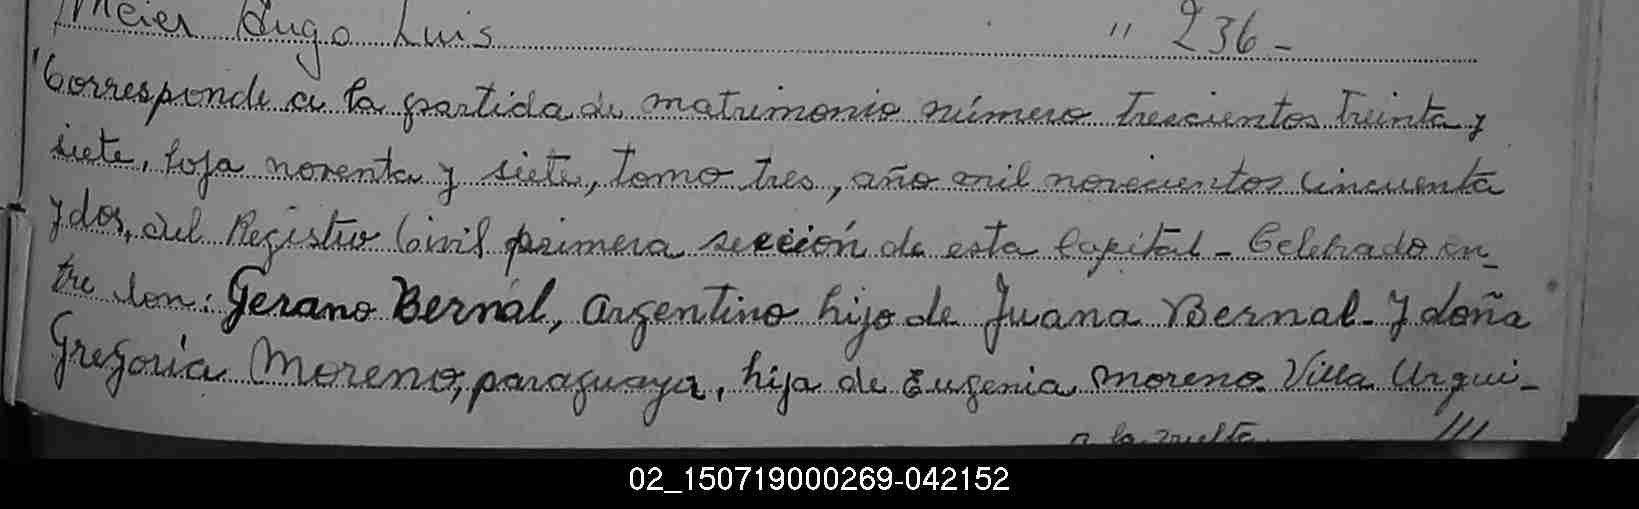 Meier Hugo Luis " 236-
Corresponde a la partida de matrimonio número trescientos treinta y
siete, hoja noventa y siete, tomo tres, año mil novecientos cincuenta
y dos, del Registro Civil primera sección de esta Capital - Celebrado en_
tre don: Gerano Bernal, Argentino hijo de Juana Bernal - y doña
Gregoria Moreno, paraguaya, hija de Eugenia Moreno. Villa Urqui-
a la vuelta ///
02_150719000269-042152